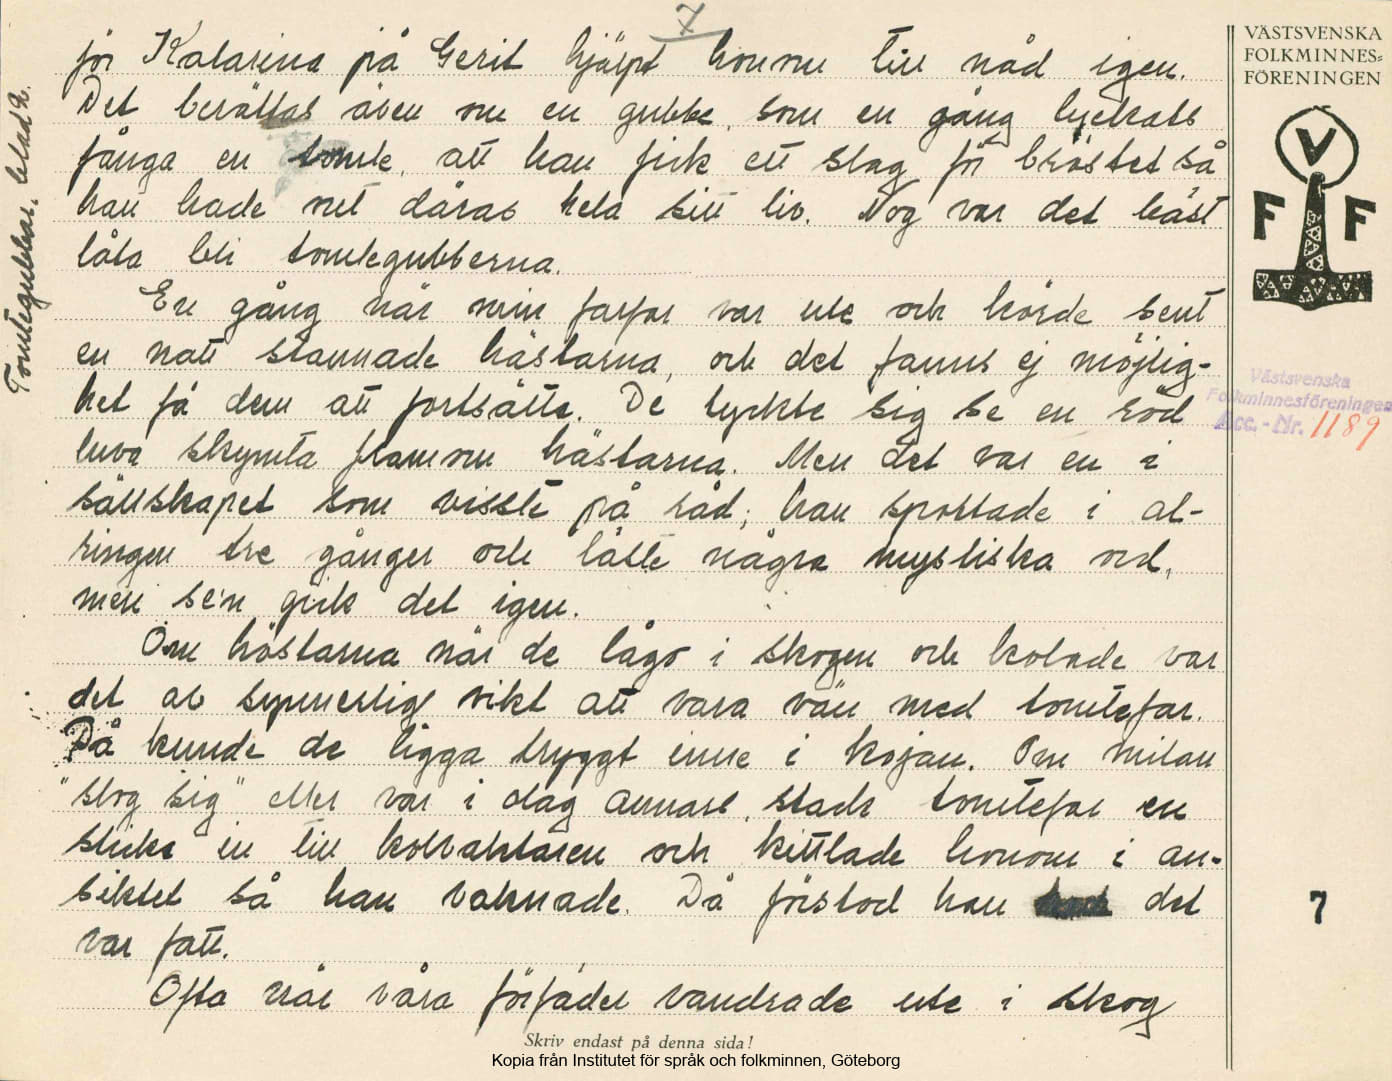 7
jör Katarina på Gerit hjälpt honom till nåd igen.
Det berättas även om en gubbe, som en gång lyckats
fånga en tomte, att han fick ett slag för bröstet så
han hade met däras hela sitt liv. Nog var det bäst
låta bli tomtegubberna.
En gång när min farfar var ute och körde sent
en natt stannade hästarna, och det fanns ej möjlig-
het få dem att fortsätta. De tyckte sig se en röd
luva skymta framom hästarna. Men det var en i
sällskapet som visste på råd; han spottade i al-
ringen tre gånger och läste några mystiska ord,
men se'n gick det igen.
Om höstarna när de lågo i skogen och kolade var
det av synnerlig vikt att vara vän med tomtefar.
Då kunde de ligga tryggt inne i kojan. Om milan
"slog sig" eller var i olag annars, stack tomtefar en
sticka in till kolvaktaren och kittlade honom i an-
siktet så han vaknade. Då förstod han det
var fatt.
Ofta när våra förfäder vandrade ute i skog
Tomtegubbar,
VÄSTSVENSKA
FOLKMINNES=
FÖRENINGEN
V
F F
Västsvenska
Folkminnesföreningen
Acc.-Nr. 1189
7
Skriv endast på denna sida!
Kopia från Institutet för språk och folkminnen, Göteborg